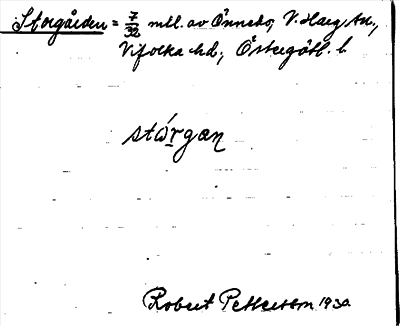 Storgården = 7/32 mtl. av Önnebo, V. Harg sn.,
Vifolka hd., Östergötl. l.
stórgan
Robert Pettersson 1930.